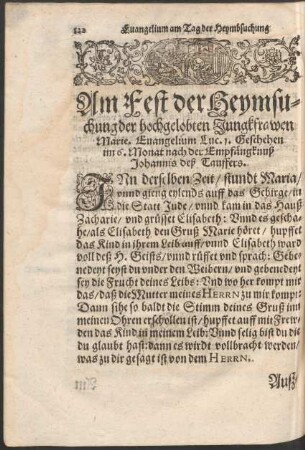 Euangelium am Tag der Heymbsuchung
Am Fest der Heymsu-
chung der hochgelobten Jungkfrawen
Marie, Euangelium Luc. 1. Geschehen
im 6. Monat nach der Empfängknuß
Johannis deß Tauffers.
IN derselben Zeit / stundt Maria /
vnnd gieng eylends auff das Gebirge / in
die Statt Jude / vnnd kam in das Hauß
Zacharie / vnd grüsset Elisabeth: Vnnd es gescha-
he / als Elisabeth den Gruß Marie höret / hupffet
das Kind in ihrem Leib auff / vnnd Elisabeth ward
voll deß H. Geists / vnnd rüffet vnd sprach: Gebe-
nedeyt seyst du vnder den Weibern / vnd gebenedeyt
sey die Frucht deines Leibs: Vnd wo her kompt mir
das / daß die Mutter meines HERRN zu mir kompt?
Dann sihe so baldt die Stimm deines Gruß inn
meinen Ohren erschollen ist / hupffet auff mit Frew-
den das Kind in meinem Leib: Vnnd selig bist du die
du glaubt hast: dann es wirdt vollbracht werden /
was zu dir gesagt ist von dem HERRN.
Auß-